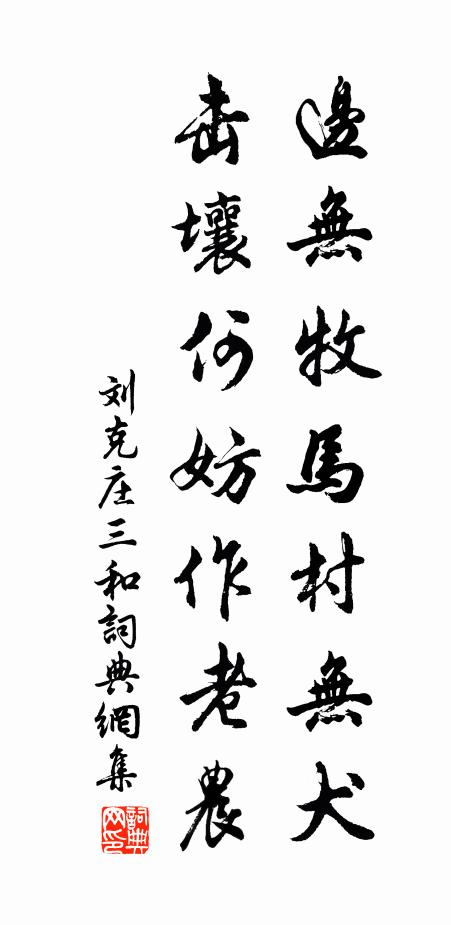 邊無牧馬村無犬
击壤何妨作老農
刘克庄三和詞典網集
詞典网印